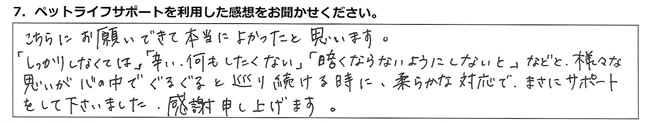 7．ペットライフサポートを利用した感想をお聞かせください。
こちらにお願いできて本当によかったと思います。
「しっかりしなくては」「辛い、何もしたくない」「暗くならないようにしないと」などと、様々な
思いが心の中でぐるぐると巡り続ける時に、柔らかな対応で、まさにサポート
をして下さいました。感謝申し上げます。